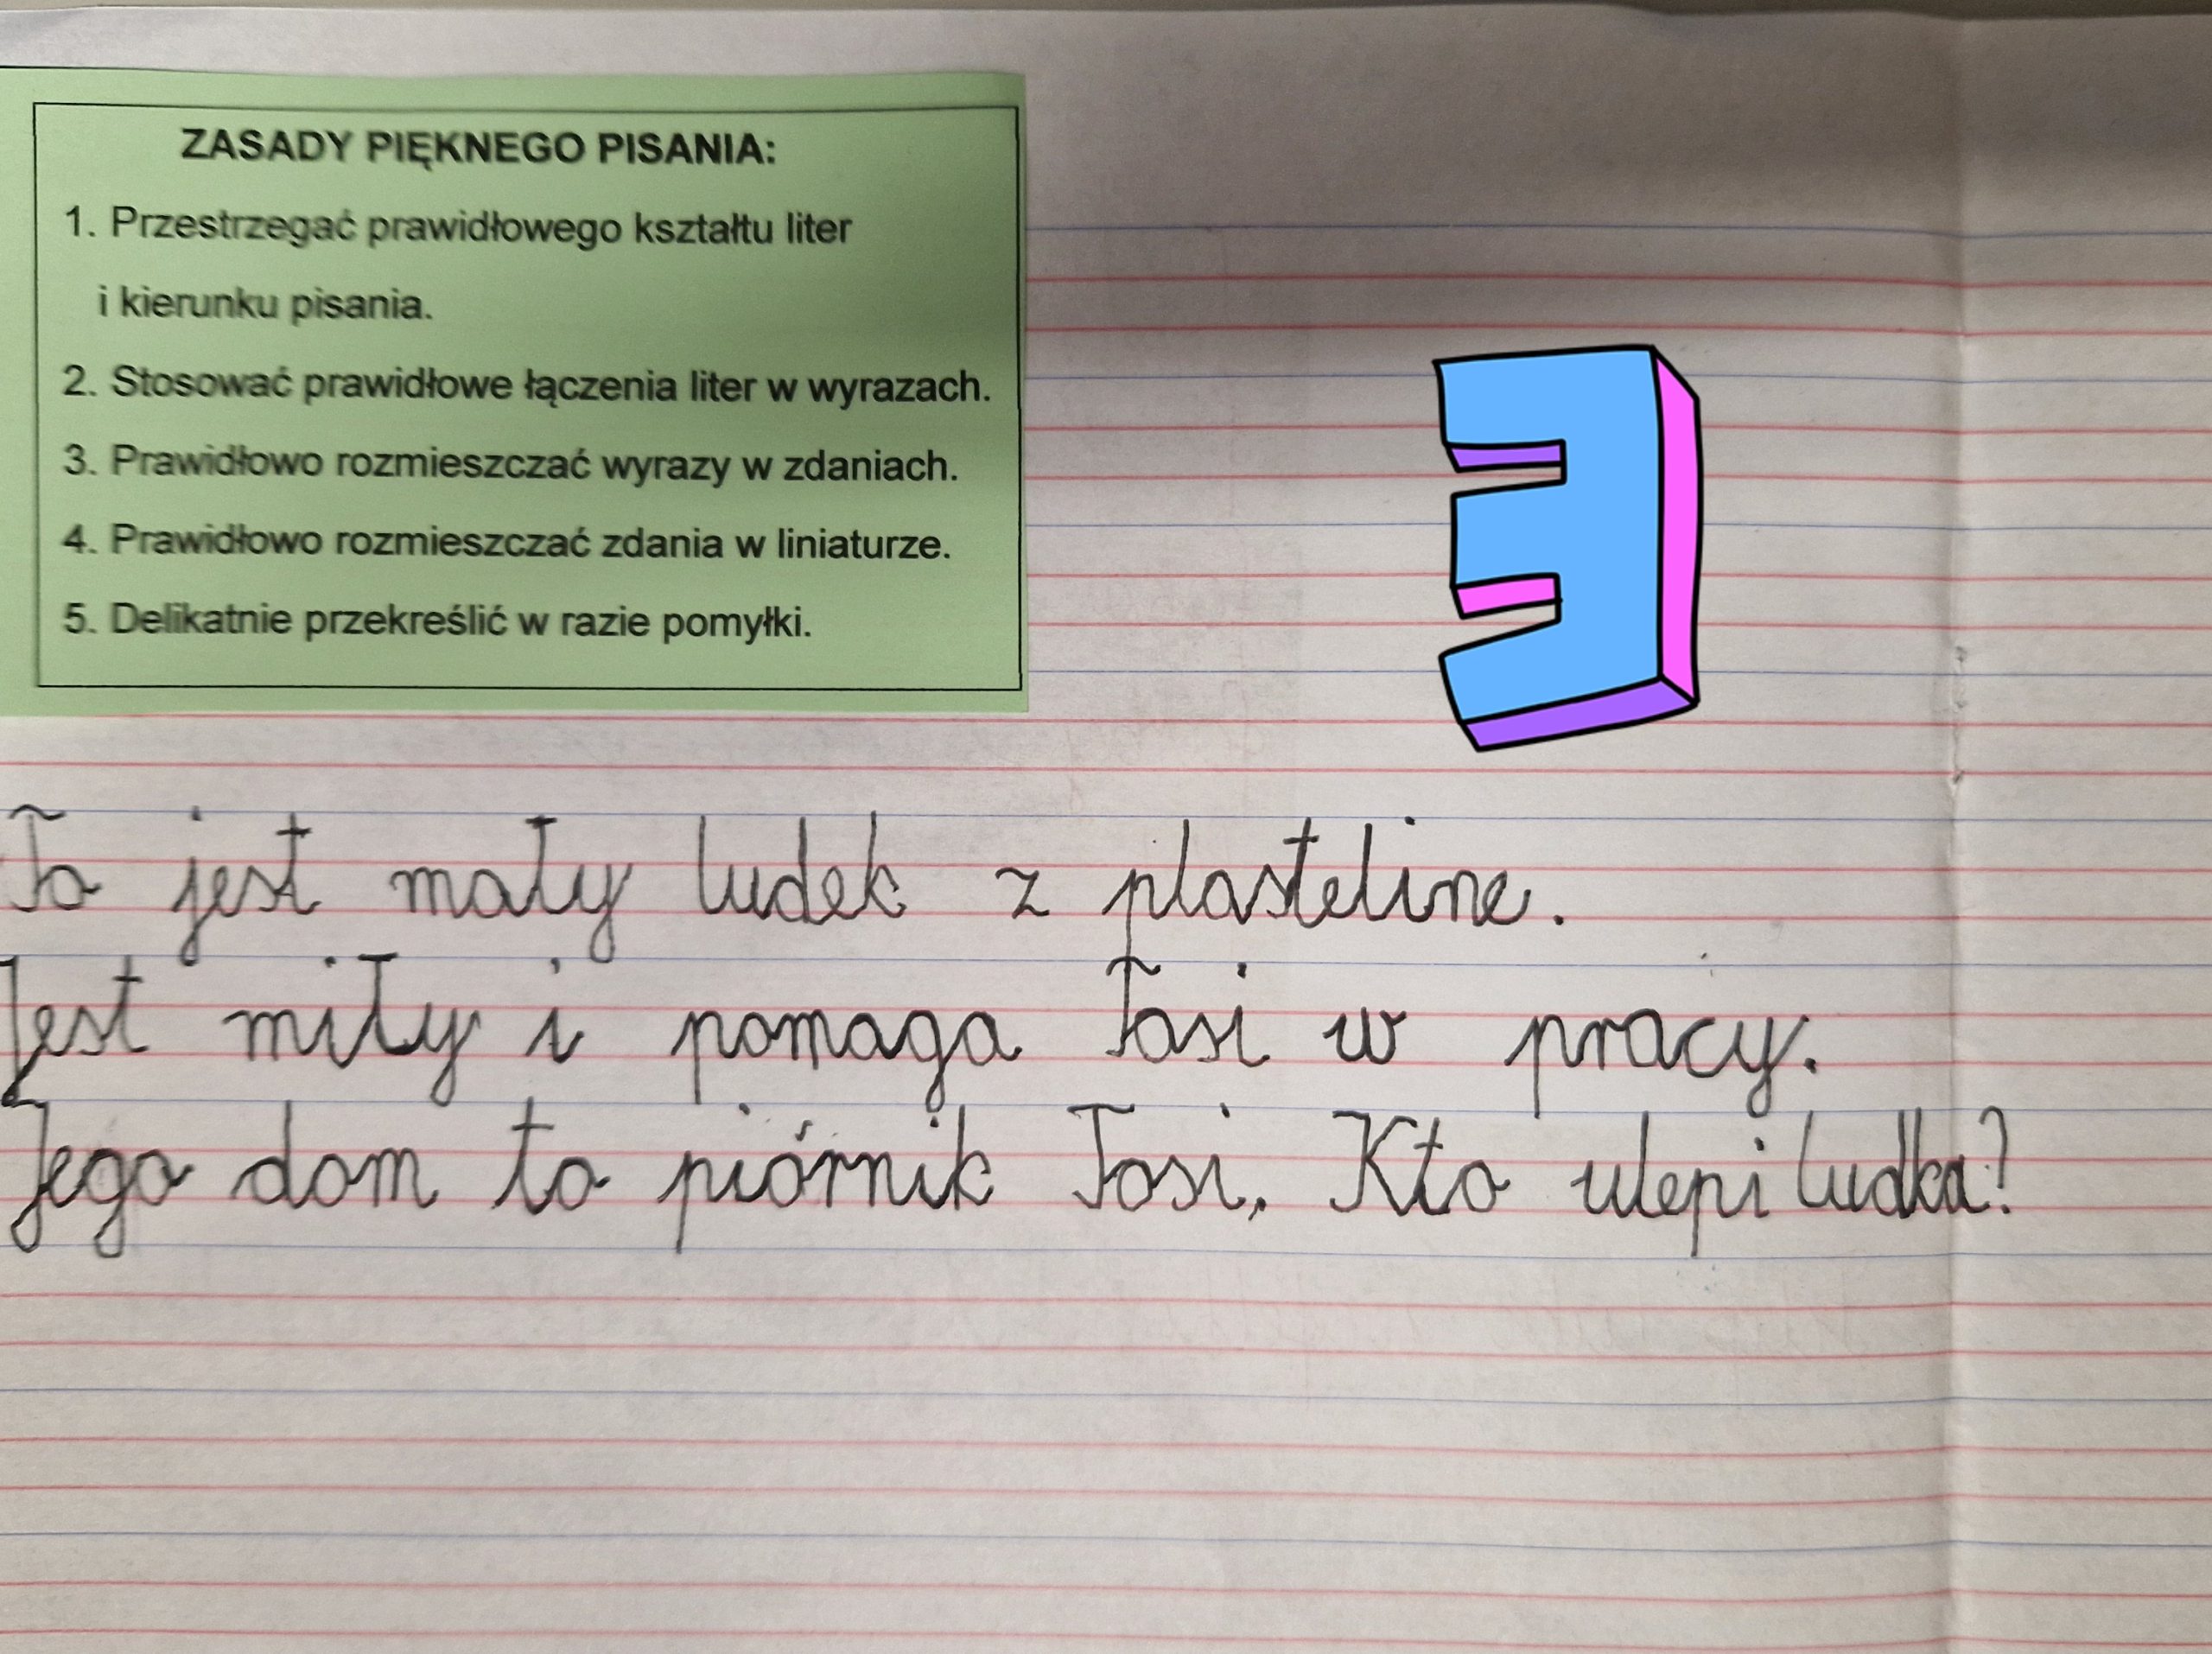 ZASADY PIĘKNEGO PISANIA:
1. Przestrzegać prawidłowego kształtu liter
i kierunku pisania.
2. Stosować prawidłowe łączenia liter w wyrazach.
3. Prawidłowo rozmieszczać wyrazy w zdaniach.
4. Prawidłowo rozmieszczać zdania w liniaturze.
5. Delikatnie przekreślić w razie pomyłki.
3
To jest mały ludek z plasteline.
Jest miły i pomaga Tosi w pracy.
Jego dom to piórnik Tosi. Kto ulepi ludka?